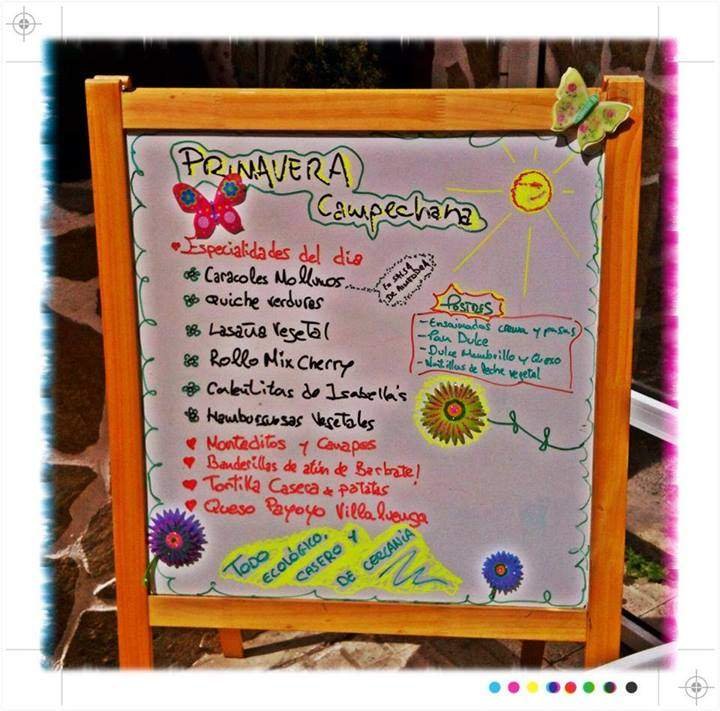 PRIMAVERA
Campechana
Especialidades del dia
Caracoles Mollinos
EN SALSA
DE ALMENDRA
Quiche verduras
Lasaña Vegetal
Rollo Mix Cherry
Calentitas de Isabella's
Hamburguesas Vegetales
Montaditos y Canapes
Banderillas de atún de Barbate!
Tortilla Casera de patatas
Queso Payoyo Villaluenga
POSTRES
- Ensaimadas crema y pasas
- Pan Dulce
- Dulce Membrillo y Queso
- Natillas de leche vegetal
TODO
ECOLÓGICO,
CASERO Y
DE CERCANÍA